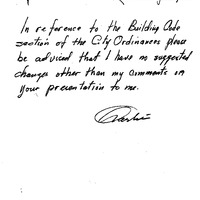 In reference to the Building Code
section of the City Ordinances please
be adviced that I have no suggested
changes other than my comments on
your presentation to me.